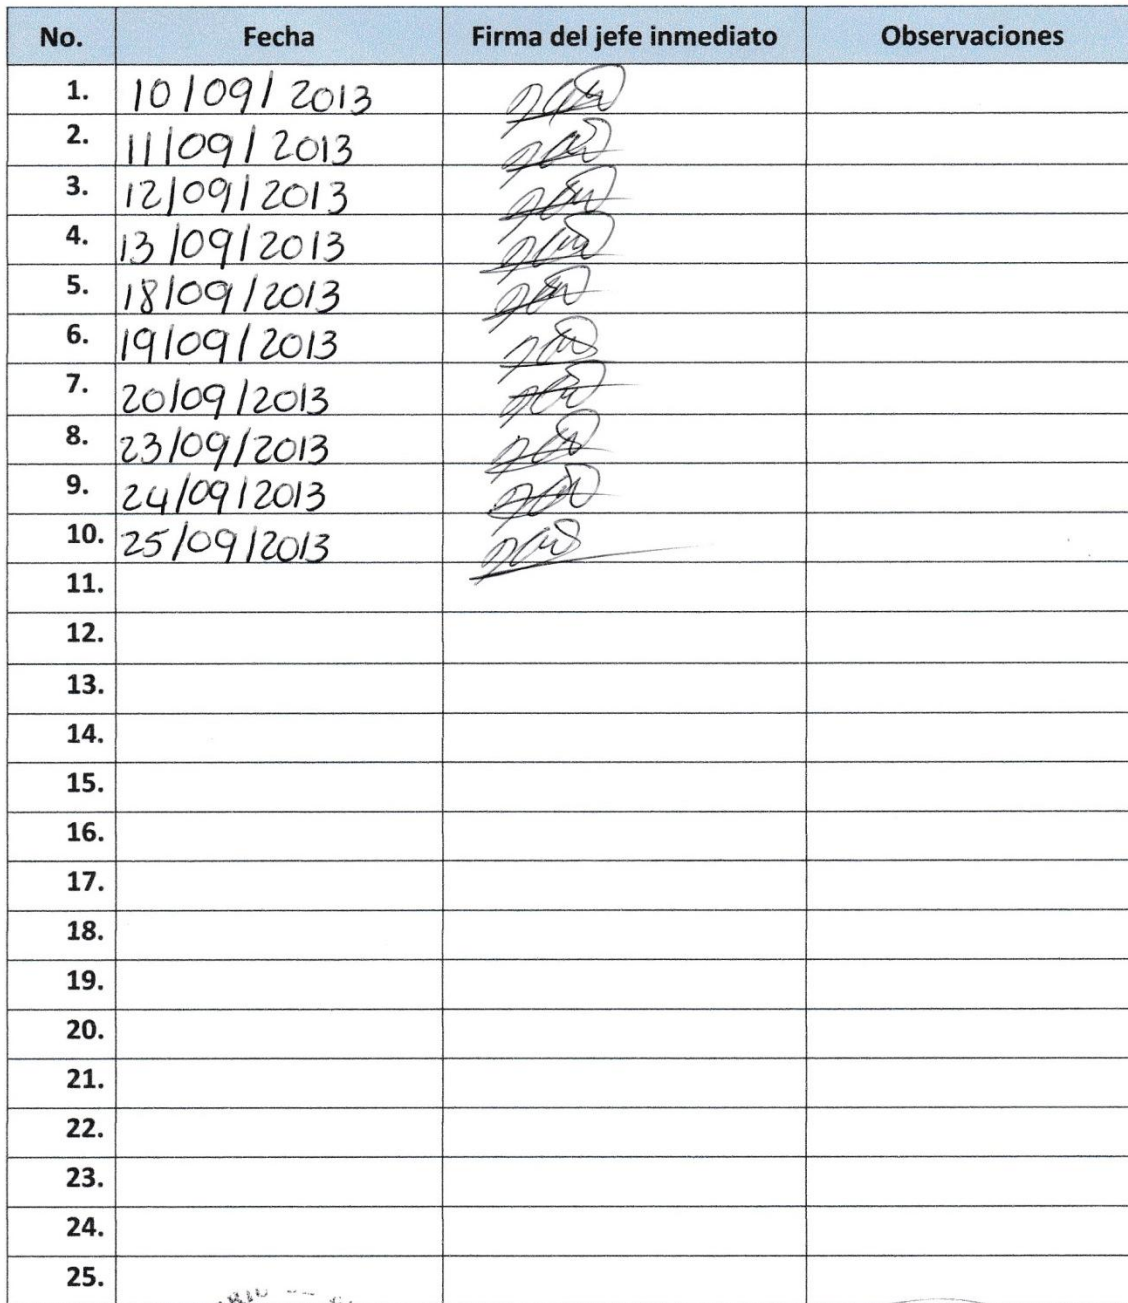 No. Fecha Firma del jefe inmediato Observaciones
1. 10/09/2013
2. 11/09/2013
3. 12/09/2013
4. 13/09/2013
5. 18/09/2013
6. 19/09/2013
7. 20/09/2013
8. 23/09/2013
9. 24/09/2013
10. 25/09/2013
11.
12.
13.
14.
15.
16.
17.
18.
19.
20.
21.
22.
23.
24.
25.